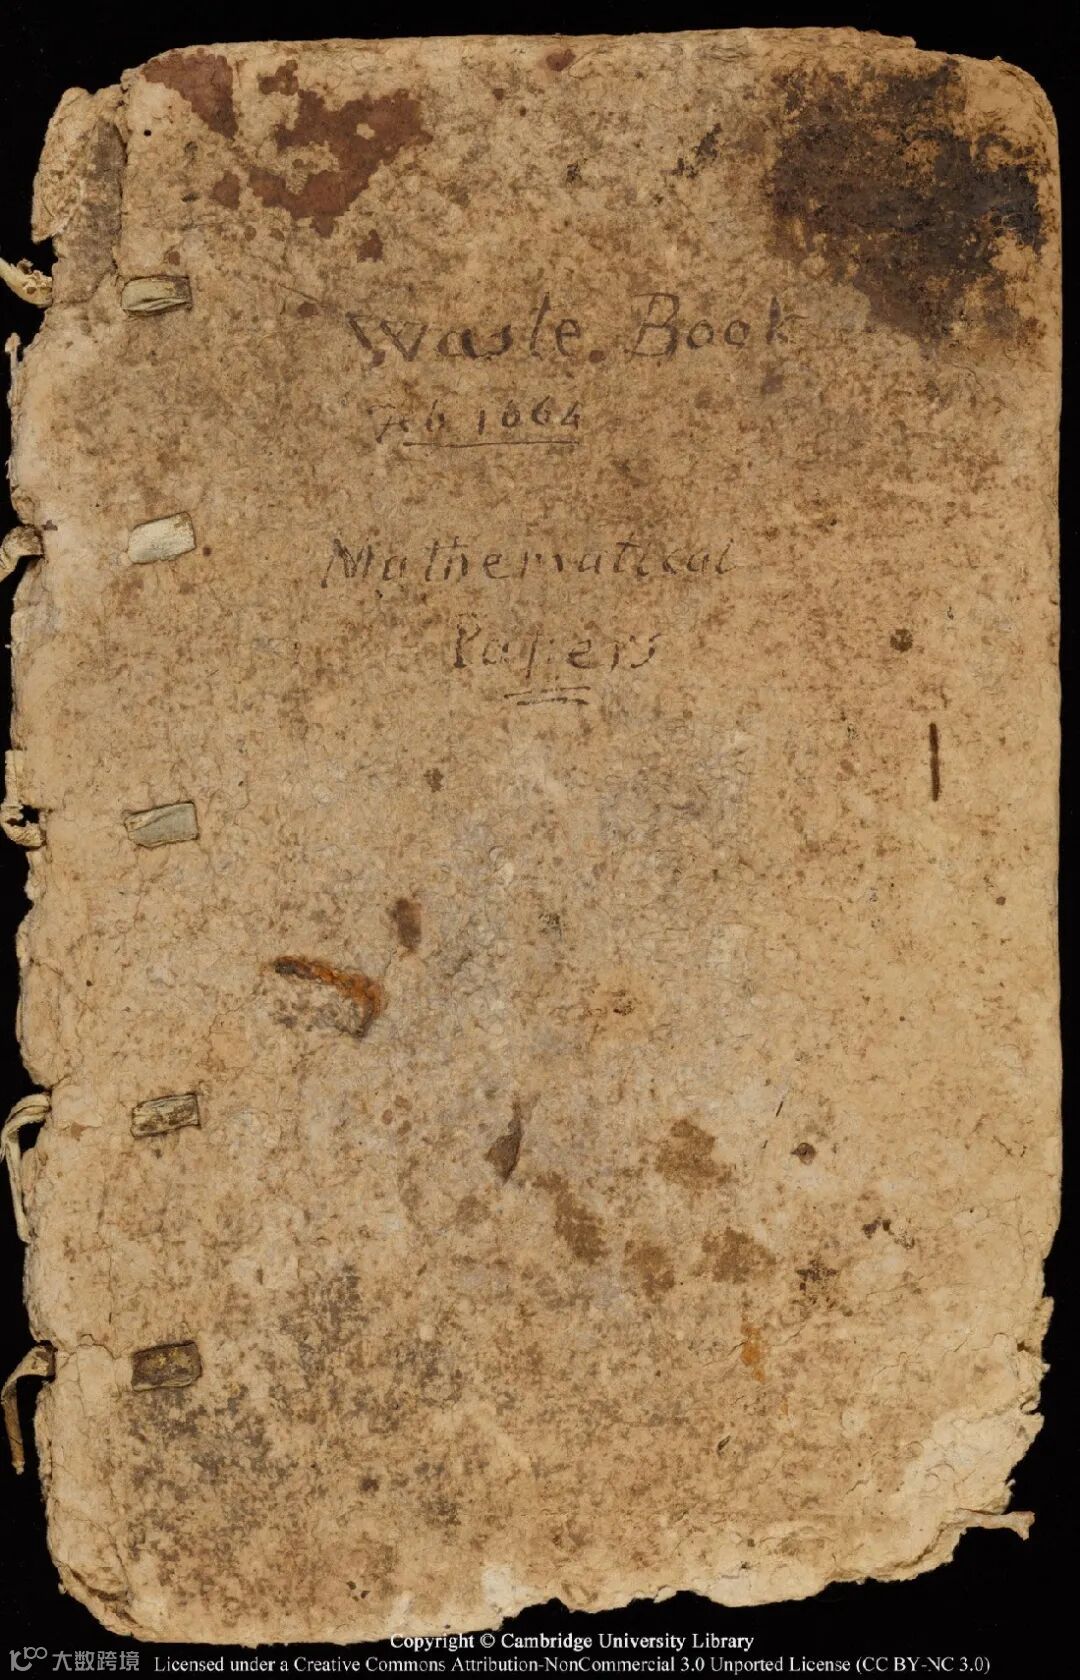 Waste Book
Feb 1664
Mathematical
Papers
Copyright © Cambridge University Library
Licensed under a Creative Commons Attribution-NonCommercial 3.0 Unported License (CC BY-NC 3.0)
大数跨境